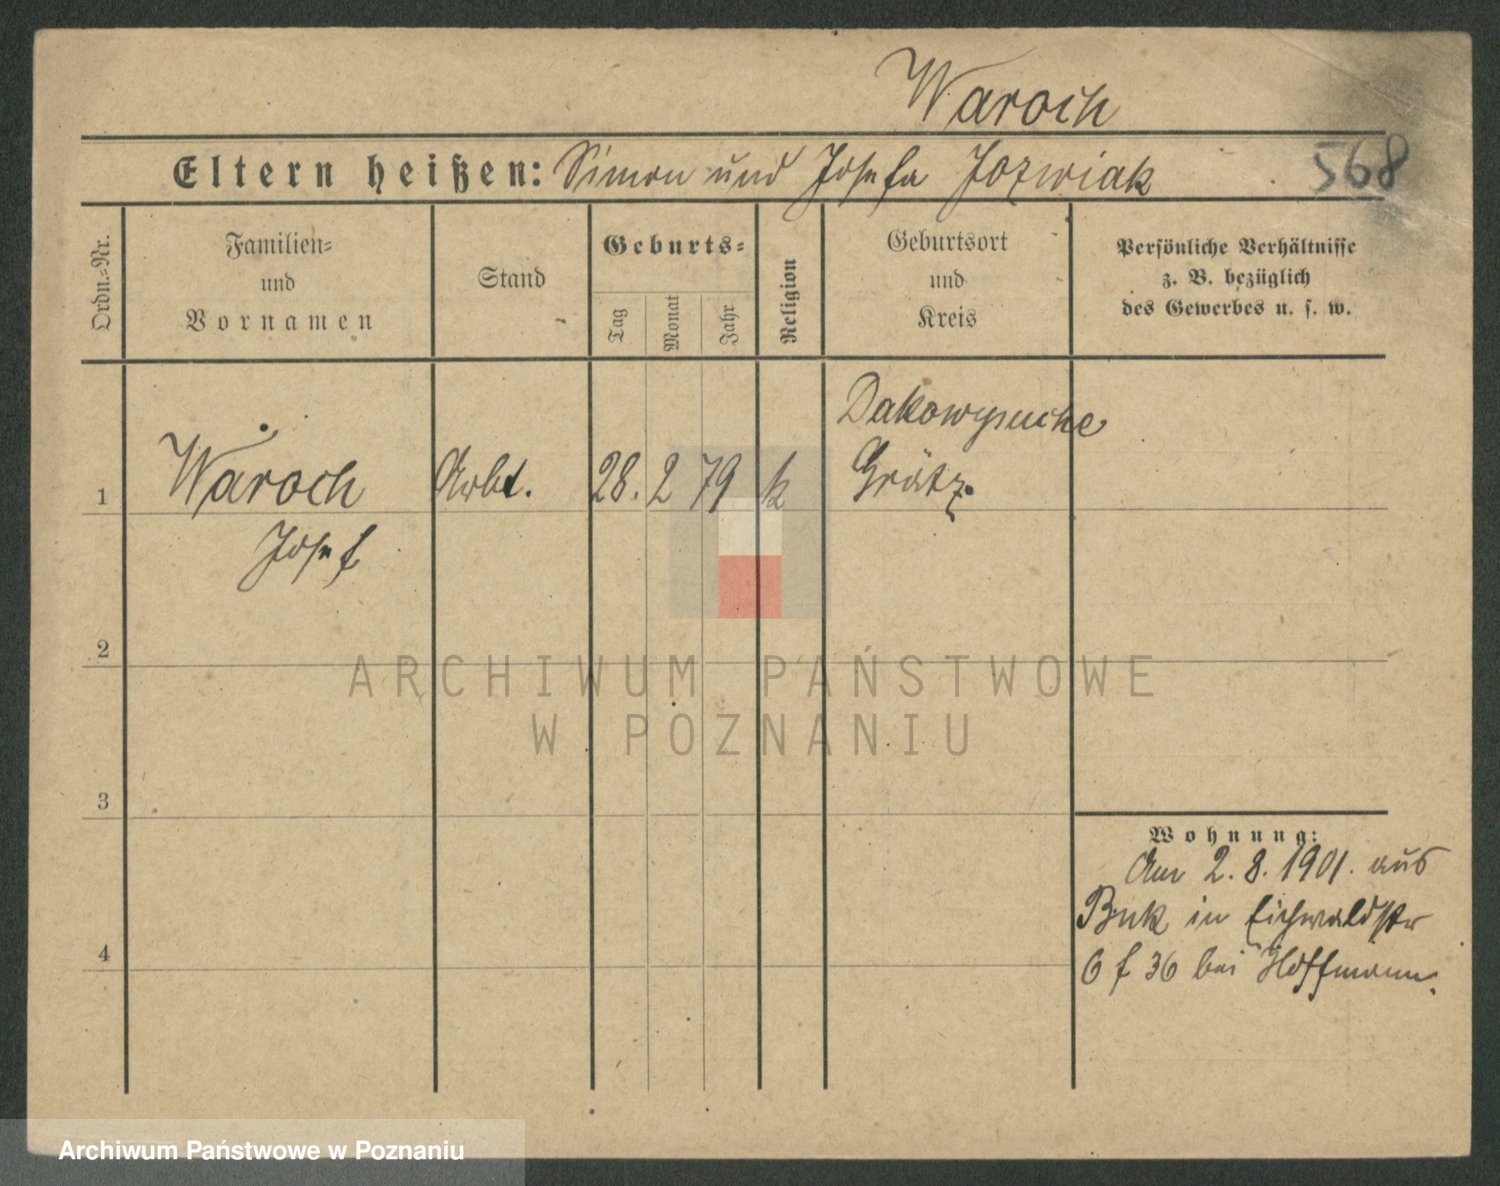 Waroch
568
Eltern heißen: Simon und Josefa Jozwiak
Ordn.-Nr.
Familien-
und
Vornamen
Stand
Geburts-
Tag
Monat
Jahr
Religion
Geburtsort
und
Kreis
Persönliche Verhältnisse
z. B. bezüglich
des Gewerbes u. s. w.
Dakowysuche
1 Waroch Arbt. 28. 2 79 k Grätz.
Josef
2
ARCHIWUM PAŃSTWOWE
W POZNANIU
3
Wohnung:
Am 2. 8. 1901. aus
Buk in Eichwaldstr
4
6 f 36 bei Hoffmann.
Archiwum Państwowe w Poznaniu